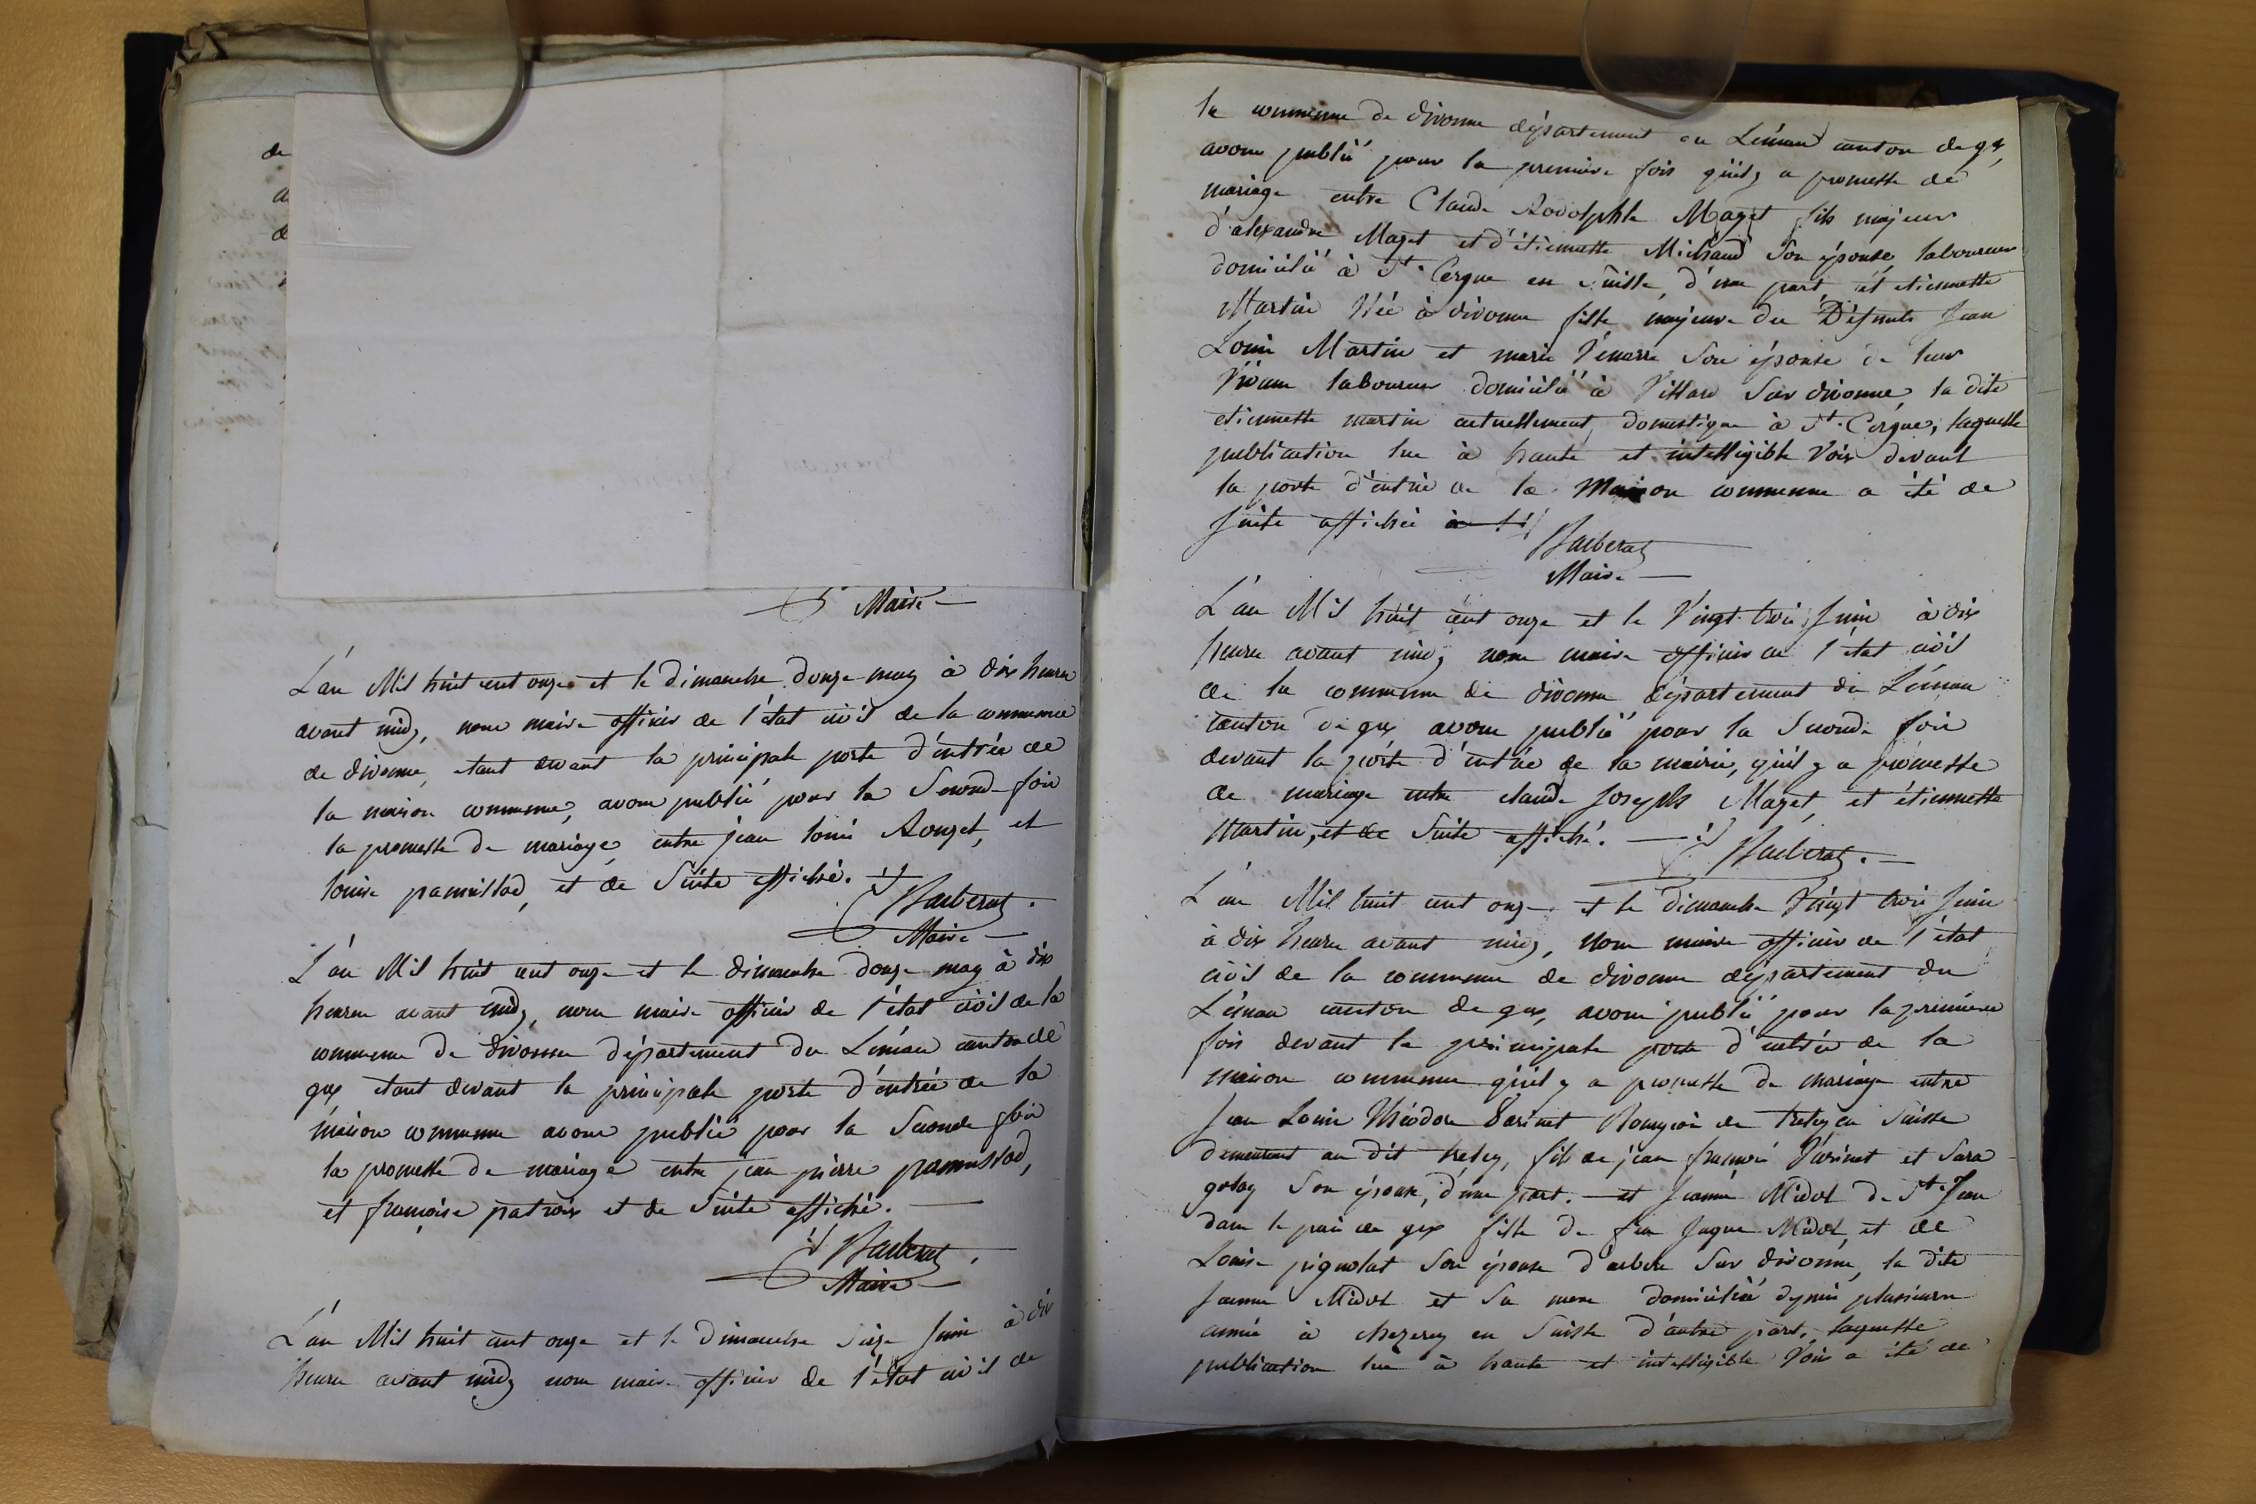 de
a
d
Maire
L'an Mil huit cent onze et le dimanche douze may à dix heures
avant midy, nous maire officier de l'état civil de la commune
de divonne, etant devant la principale porte d'entrée de
la maison commune, avons publié pour la Seconde fois
la promesse de mariage, entre jean louis Rouget, et
louise panissod, et de Suite affiché.
Barberat
Maire
L'an Mil huit cent onze et le dimanche douze may à dix
heures avant midy, nous maire officier de l'état civil de la
commune de Divonne département du Léman canton de
gex etant devant la principale porte d'entrée de la
maison commune avons publié pour la Seconde fois
la promesse de mariage entre jean pierre panissod,
et françoise patroix et de Suite affiché.
Barberat
Maire
L'an Mil huit cent onze et le Dimanche Seize Juin à dix
heures avant midy nous maire officier de l'état civil de
la commune de divonne département du Léman canton de gex,
avons publié pour la premiere fois qu'il y a promesse de
mariage entre Claude Rodolphe Maget fils majeur
d'alexandre Maget et d'étiennette Michaud Son épouse, laboureur
domicilié à St. Cergue en Suisse, d'une part, et etiennette
Martin Née à divonne fille majeure des Défunts Jean
Louis Martin et marie Venarre Son épouse de leur
Vivans laboureur domicilié à Villard Sur divonne, la dite
etiennette martin actuellement domestique à St. Cergue, laquelle
publication lue à haute et intelligible Voix devant
la porte d'entrée de la Maison commune a été de
Suite affichée
Barberat
Maire
L'an Mil huit cent onze et le Vingt trois Juin à dix
heures avant midy nous maire officier de l'état civil
de la commune de divonne département du Léman
canton de gex avons publié pour la Seconde fois
devant la porte d'entrée de la mairie, qu'il y a promesse
de mariage entre claude Joseph Maget, et étiennette
Martin, et de Suite affiché.
Barberat.
L'an Mil huit cent onze et le dimanche Vingt trois Juin
à dix heures avant midy, Nous maire officier de l'état
civil de la commune de divonne département du
Léman canton de gex, avons publié pour la premiere
fois devant la principale porte d'entrée de la
maison commune qu'il y a promesse de mariage entre
Jean Louis Théodore Varinet de trelex en Suisse
demeurant au dit trelex, fils de jean françois Varinet et Sara
golay Son épouse, d'une part. et Jeanne Midol de St. Jean
dans le pais de gex fille de feu Jaque Midol, et de
Louise pignolat Son épouse d'arbere Sur divonne, la dite
Jeanne Midol et Sa mere domiciliée depuis plusieurs
année à cheserex en Suisse d'autre part, laquelle
publication lue à haute et intelligible Voix a été de